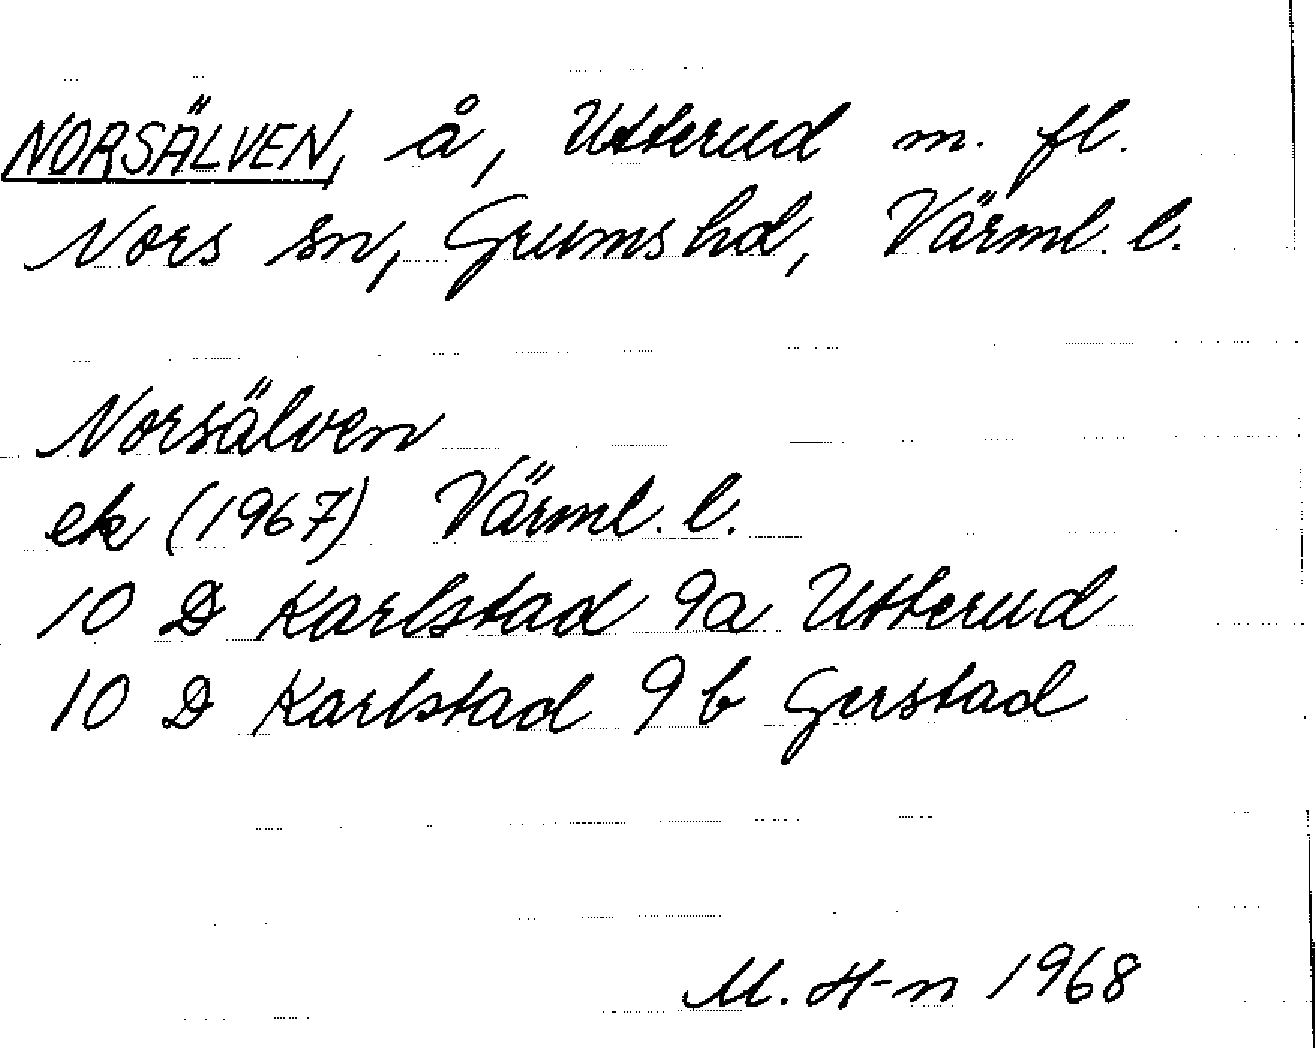 NORSÄLVEN, å, Utterud m. fl.
Nors sn, Grums hd, Värml. l.
Norsälven
ek (1967) Värml. l.
10 D Karlstad 9a Utterud
10 D Karlstad 9 b Gerstad
M. H-n 1968